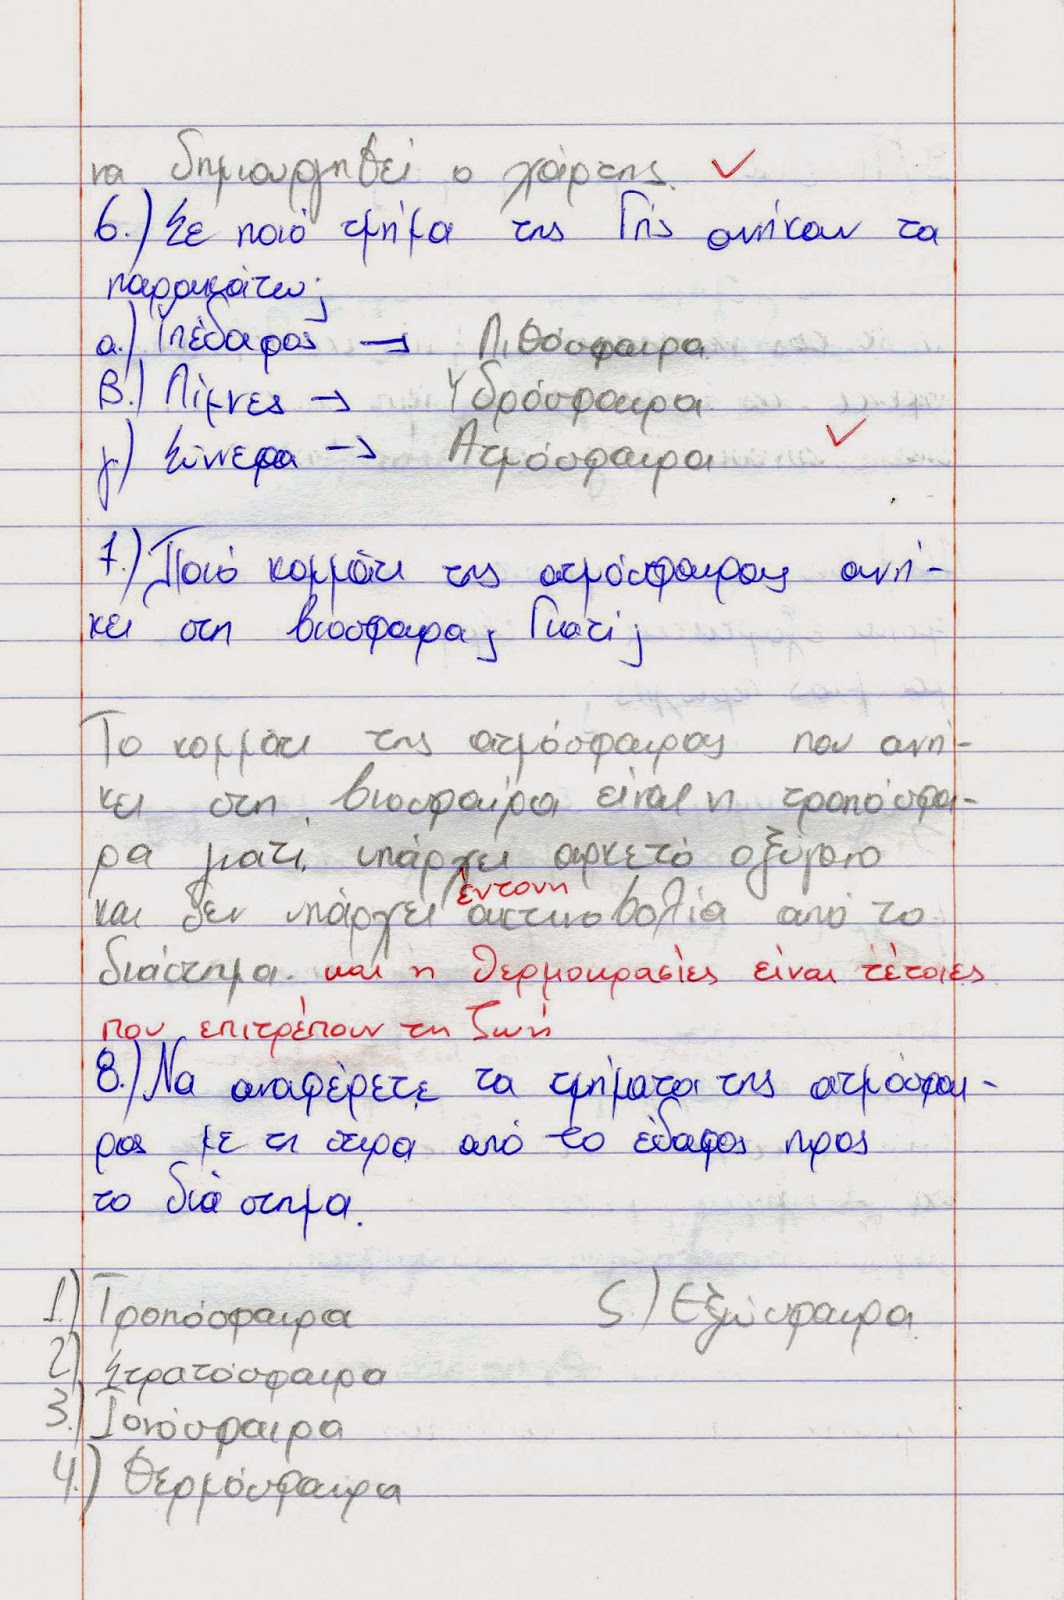 να δημιουργηθεί ο χάρτης.
6.) Σε ποιό τμήμα της Γής ανήκουν τα
παρακάτω;
α.) Υπέδαφος → Λιθόσφαιρα
β.) Λίμνες → Υδρόσφαιρα
γ) Σύννεφα → Ατμόσφαιρα
7.) Ποιό κομμάτι της ατμόσφαιρας ανή-
κει στη βιοσφαιρα; Γιατί;
Το κομμάτι της ατμόσφαιρας που ανή-
κει στη βιοσφαίρα είναι η τροπόσφαι-
ρα γιατί υπάρχει αρκετό οξυγόνο
έντονη
και δεν υπάρχει ακτινοβολία από το
διάστημα. και η θερμοκρασίες είναι τέτοιες
που επιτρέπουν τη ζωή
8.) Να αναφέρετε τα τμήματα της ατμόσφαι-
ρας με τη σειρα από το έδαφος προς
το διάστημα.
1.) Τροπόσφαιρα 5.) Εξώσφαιρα
2) Στρατόσφαιρα
3.) Ιονόσφαιρα
4.) Θερμόσφαιρα